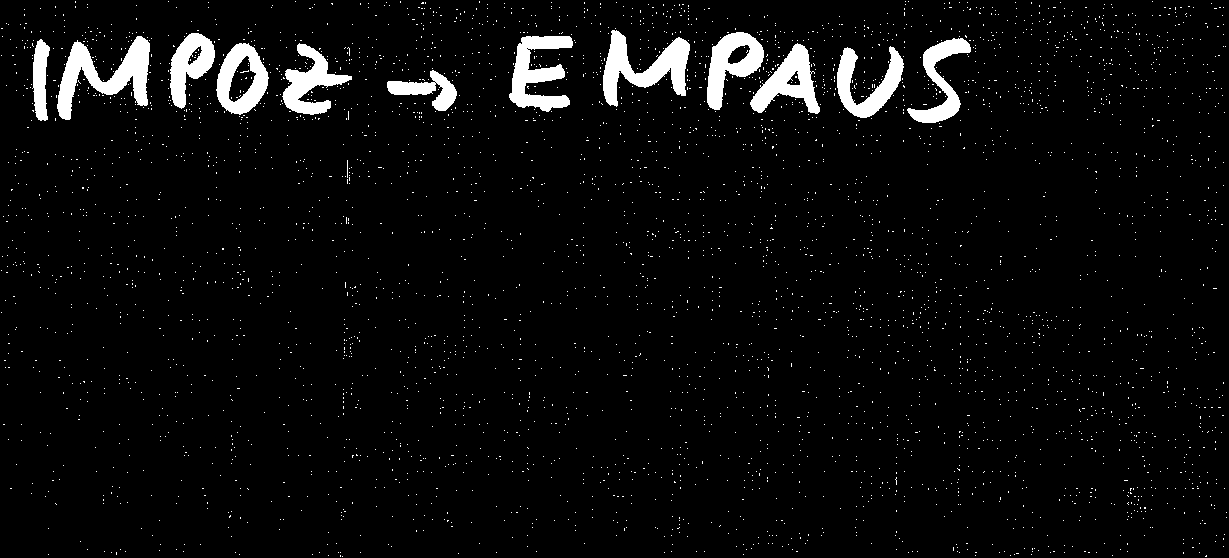 IMPOZ → EMPAUS